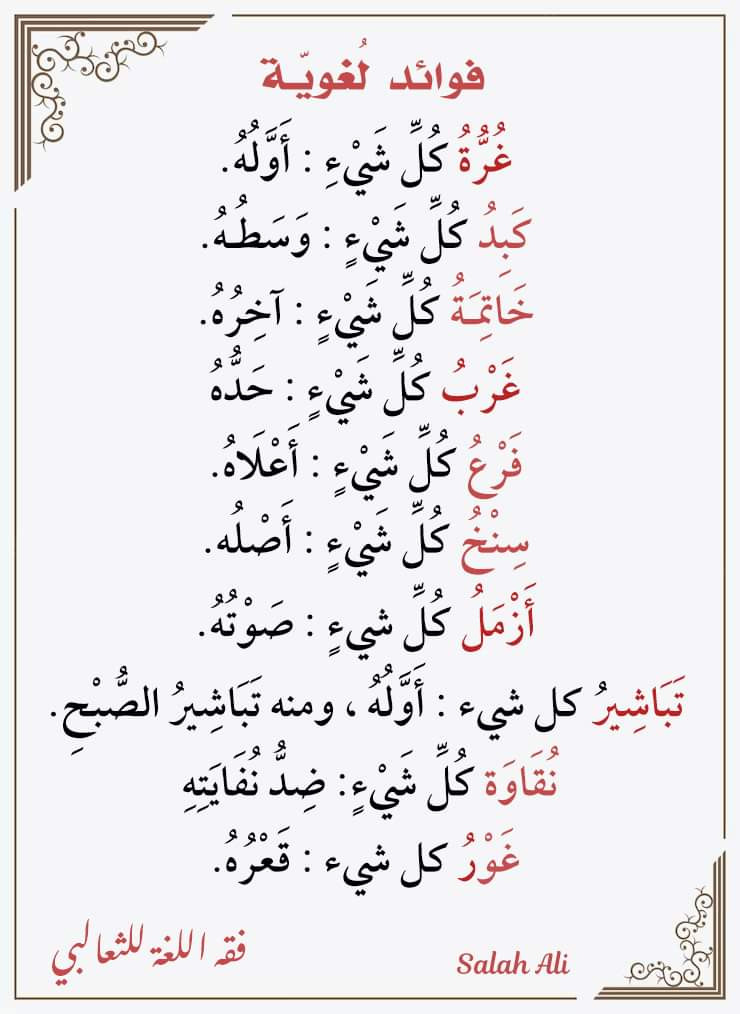 فوائد لُغويّـة
غُرُّةُ كُلِّ شَيْءِ : أَوَّلُهُ.
كَبِدُ كُلِّ شَيْءٍ : وَسَطُـهُ.
خَاتِمَـةُ كُلِّ شَيْءٍ : آخِرُهُ.
غَرْبُ كُلِّ شَيْءٍ : حَدُّهُ
فَرْعُ كُلِّ شَيْءٍ : أَعْلَاهُ.
سِنْخُ كُلِّ شَيْءٍ : أَصْلُه.
أَزْمَلُ كُلِّ شيءٍ : صَوْتُهُ.
تَبَاشِيرُ كل شيء : أَوَّلُهُ ، ومنه تَبَاشِيرُ الصُّبْحِ.
نُقَاوَة كُلِّ شَيْءٍ: ضِدُّ نُفَايَتِهِ
غَوْرُ كل شيء : قَعْرُهُ.
فقه اللغة للثعالبي
Salah Ali